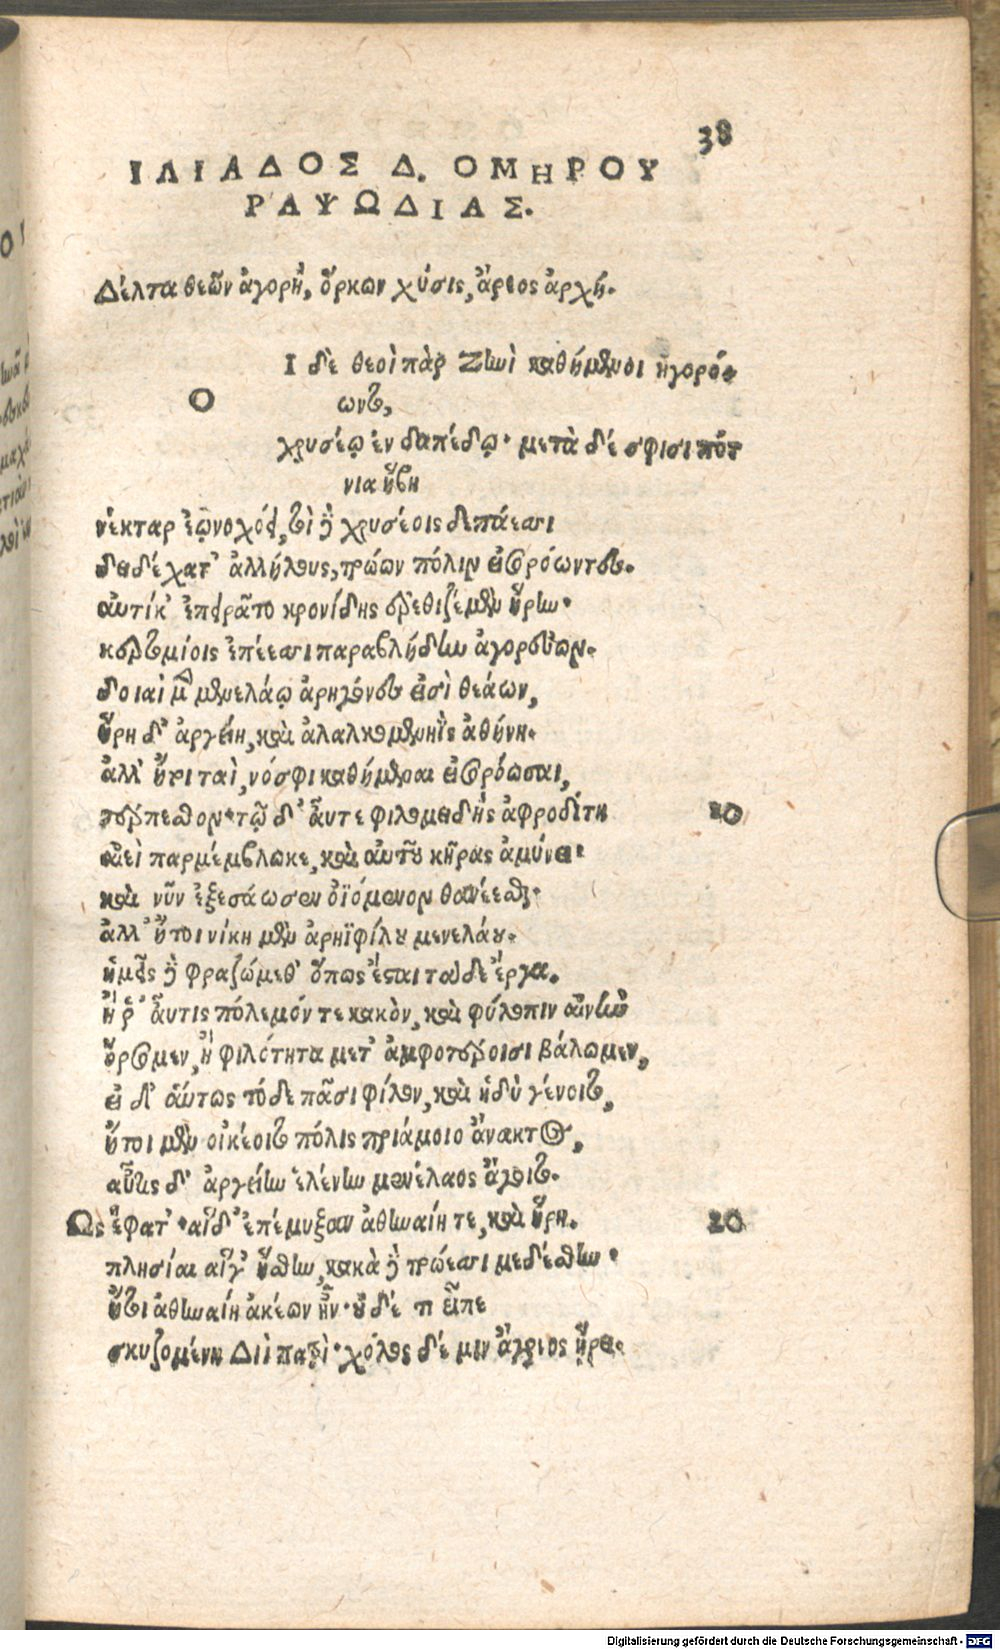 38
ΙΛΙΑΔΟΣ Δ. ΟΜΗΡΟΥ
ΡΑΨΩΔΙΑΣ.
Δέλτα θεῶν ἀγορὴ, ὅρκων χύσις, ἄρεος ἀρχή.
Ο
Ι δὲ θεοὶ πὰρ Ζηνὶ καθήμενοι ἠγορό-
ωντο,
χρυσέῳ ἐν δαπέδῳ· μετὰ δέ σφισι πότ
νια ἥβη
νέκταρ ἐῳνοχόει, τοὶ δὲ χρυσέοις δεπάεσσι
δειδέχατ' ἀλλήλους, τρώων πόλιν εἰσορόωντες.
αὐτίκ' ἐπειρᾶτο κρονίδης ἐρεθιζέμεν ἥρην·
κερτομίοις ἐπέεσσι παραβλήδην ἀγορεύων.
δοιαὶ μὲν μενελάῳ ἀρηγόνες εἰσὶ θεάων,
ἥρη δ' ἀργείη, καὶ ἀλαλκομενηῒς ἀθήνη.
ἀλλ' ἤτοι ταὶ, νόσφι καθήμεναι εἰσορόωσαι,
τέρπεσθον· τῷ δ' αὖτε φιλομειδὴς ἀφροδίτη
10
αἰεὶ παρμέμβλωκε, καὶ αὐτοῦ κῆρας ἀμύνει·
καὶ νῦν ἐξεσάωσεν ὀϊόμενον θανέεσθαι·
ἀλλ' ἤτοι νίκη μὲν ἀρηϊφίλου μενελάου.
ἡμεῖς δὲ φραζώμεθ' ὅπως ἔσται τάδε ἔργα.
ἤ ῥ' αὖτις πόλεμόν τε κακὸν, καὶ φύλοπιν αἰνὴν
ὄρσομεν, ἢ φιλότητα μετ' ἀμφοτέροισι βάλωμεν,
εἰ δ' αὕτως τόδε πᾶσι φίλον, καὶ ἡδὺ γένοιτο,
ἤτοι μὲν οἰκέοιτο πόλις πριάμοιο ἄνακτος,
αὖτις δ' ἀργείην ἑλένην μενέλαος ἄγοιτο.
Ως ἔφατ'· αἱ δ' ἐπέμυξαν ἀθηναίη τε, καὶ ἥρη.
20
πλησίαι αἵγ' ἥσθην, κακὰ δὲ τρώεσσι μεδέσθην·
ἤτοι ἀθηναίη ἀκέων ἦν· οὐδέ τι εἶπε
σκυζομένη Διῒ πατρὶ· χόλος δέ μιν ἄγριος ᾕρει.
Digitalisierung gefördert durch die Deutsche Forschungsgemeinschaft - DFG